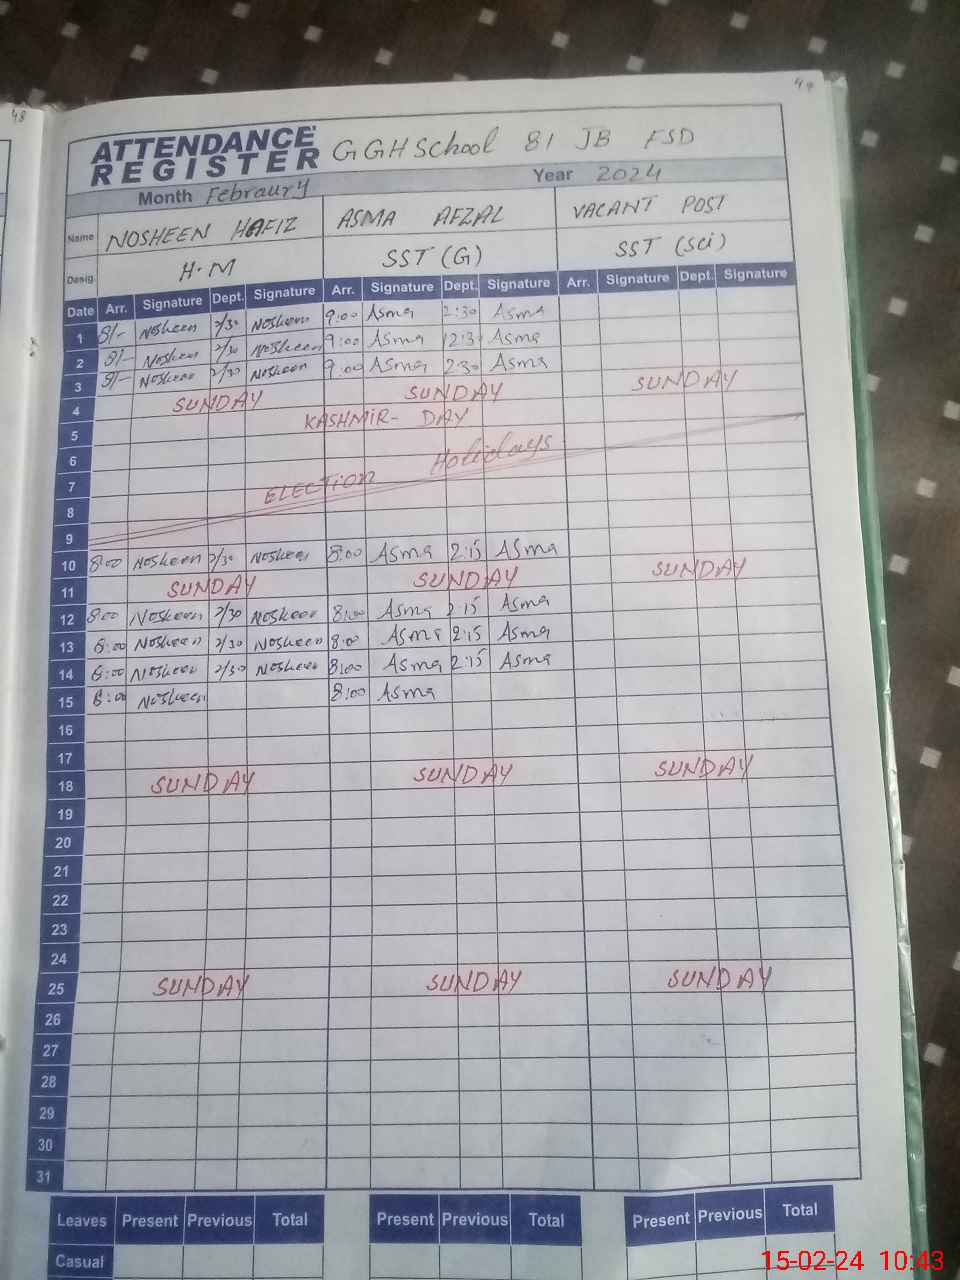 48
49
ATTENDANCE REGISTER GGHSchool 81 JB FSD
Month Febraury Year 2024
Name NOSHEEN HAFIZ ASMA AFZAL VACANT POST
Desig. H.M SST (G) SST (Sci)
Date Arr. Signature Dept. Signature Arr. Signature Dept. Signature Arr. Signature Dept. Signature
1 8/- Nosheen 2/30 Nosheen 9:00 Asma 2:30 Asma
2 8/- Nosheen 2/30 Nosheen 9:00 Asma 12:3 Asma
3 8/- Nosheen 2/30 Nosheen 9:00 Asma 2:30 Asma
4 SUNDAY SUNDAY SUNDAY
5 KASHMIR- DAY
6
7 ELECTION Holidays
8
9
10 8:00 Nosheen 2/30 Nosheen 8:00 Asma 2:15 Asma
11 SUNDAY SUNDAY SUNDAY
12 8:00 Nosheen 2/30 Nosheen 8:00 Asma 2:15 Asma
13 8:00 Nosheen 2/30 Nosheen 8:00 Asma 2:15 Asma
14 8:00 Nosheen 2/30 Nosheen 8:00 Asma 2:15 Asma
15 8:00 Nosheen 8:00 Asma
16
17
18 SUNDAY SUNDAY SUNDAY
19
20
21
22
23
24
25 SUNDAY SUNDAY SUNDAY
26
27
28
29
30
31
Leaves Present Previous Total Present Previous Total Present Previous Total
Casual
15-02-24 10:43